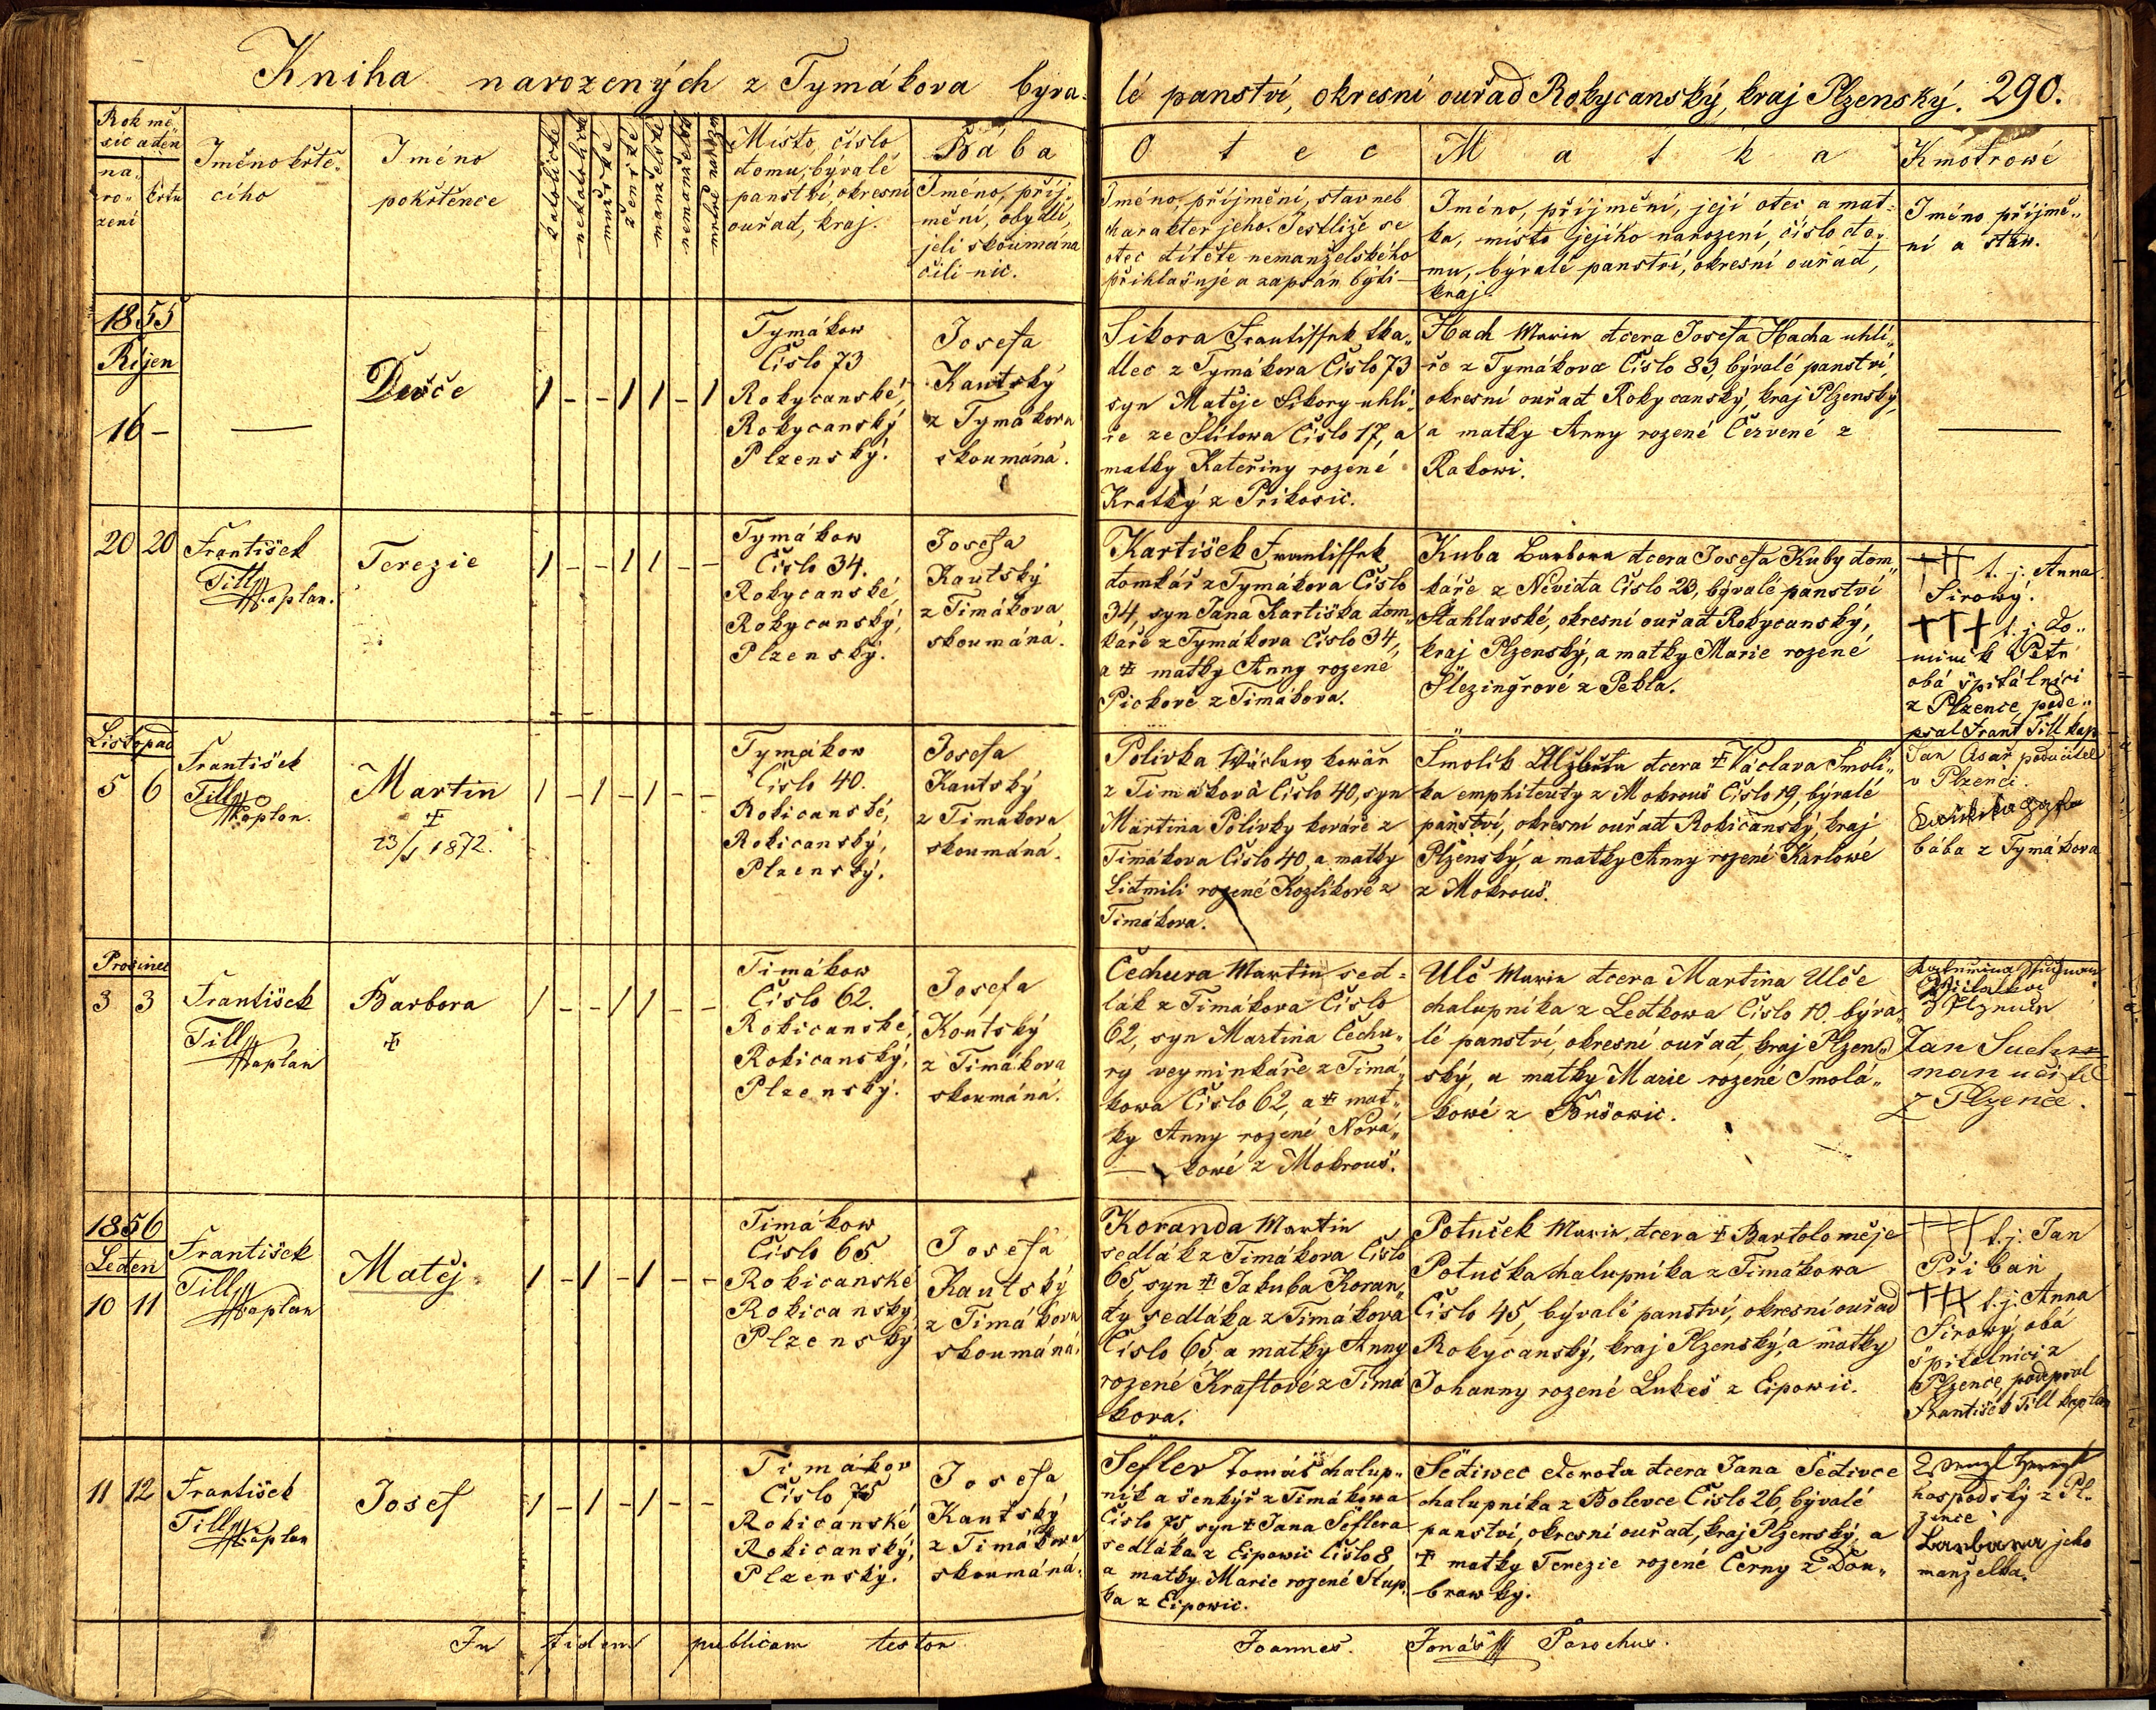 Kniha narozených z Tymákova býva-
lé panství, okresní ouřad Rokycanský, kraj Plzenský. 290.
Rok mě-
síc a den
na-
ro-
zení
křtu
Jméno křtí-
cího
Jméno
pokřtěnce
katolické
nekatolické
mužské
ženské
manželské
nemanželské
mrtvě narozen
Místo, číslo
domu, bývalé
panství, okresní
ouřad, kraj.
Bába
Jméno, příj-
mění, obydlí,
jeli skoumána
čili nic.
Otec
Jméno, příjmění, stav neb
charakter jeho. Jestliže se
otec dítěte nemanželského
přihlašuje a zapsán býti
Matka
Jméno, příjmění, její otec a mat-
ka, místo jejího narození, číslo do-
mu, bývalé panství, okresní ouřad,
kraj.
Kmotrowé
Jméno příjmě-
ní a staw.
1855
Říjen
16 –
Děvče
1 – – 1 1 – 1
Tymákow
Číslo 73
Rokycanské,
Rokycanský
Plzenský.
Josefa
Kautský
z Tymákova
skoumáná.
Sikora Frantissek tka-
dlec z Tymákova Číslo 73
syn Matěje Sikory uhlí-
ře ze Štítowa Číslo 17, a
matky Kateřiny rozené
Kratký z Příkosic.
Hach Marie dcera Josefa Hacha uhlí-
ře z Tymákova Číslo 83, bývalé panství,
okresní ouřad Rokycanský, kraj Plzenský,
a matky Anny rozené Červené z
Rakowi.
20 20
František
Till
kaplan.
Terezie
1 – – 1 1 – –
Tymákow
Číslo 34.
Rokycanské,
Rokycanský,
Plzenský.
Josefa
Kautský
z Timákova
skoumáná.
Kartišek Frantissek
domkář z Tymákova Číslo
34, syn Jana Kartiška dom-
káře z Tymákova Číslo 34,
a ‡ matky Anny rozené
Pickové z Timákova.
Kuba Barbora dcera Josefa Kuby dom-
káře z Nevida Číslo 23, bývalé panství
Štahlavské, okresní ouřad Rokycanský,
kraj Plzenský, a matky Marie rozené
Šlezingrové z Pekla.
+++ t. j. Anna
Sirowý.
+++ t. j. Do-
minik Petr
obá špitálníci
z Plzence, pode-
psal Frant Till kap
Listopad
5 6
František
Till
kaplan.
Martin
‡
23/1 1872.
1 – 1 – 1 – –
Tymákow
Číslo 40.
Rokicanské,
Rokicanský,
Plzenský.
Josefa
Kautský
z Timákova
skoumáná.
Polívka Wáclaw kowář
z Timákova Číslo 40, syn
Martina Polívky kováře z
Timákova Číslo 40, a matky
Lidmili rozené Kozlíkové z
Timákova.
Smolík Alžběta dcera ‡ Václava Smolí-
ka emphiteuty z Mokrouš Číslo 19, bývalé
panství, okresní ouřad Rokicanský, kraj
Plzenský, a matky Anny rozené Karlowé
z Mokrouš.
Jan podučitel
v Plzenci.
bába z Tymákova
Prosinec
3 3
František
Till
kaplan
Barbora
‡
1 – – 1 1 – –
Timákow
Číslo 62.
Rokicanské,
Rokicanský,
Plzenský.
Josefa
Koutský
z Timákova
skoumáná.
Čechura Martin sed-
lák z Timákova Číslo
62, syn Martina Čechu-
ry veyminkáře z Timá-
kowa Číslo 62, a ‡ mat-
ky Anny rozené Nová-
kowé z Mokrouš.
Ulč Marie dcera Martina Ulče
chalupníka z Letkowa Číslo 10 býva-
lé panství, okresní ouřad, kraj Plzen-
ský, a matky Marie rozené Smolá-
kowé z Bušowic.
Jan Such-
man učitel
z Plzence.
1856
Leden
10 11
František
Till
kaplan
Matěj
1 – 1 – 1 – –
Timákow
Číslo 65
Rokicanské
Rokicanský
Plzenský
Josefa
Kautský
z Timákova
skoumáná.
Koranda Martin
sedlák z Timákova Číslo
65, syn ‡ Jakuba Koran-
dy sedláka z Timákova
Číslo 65, a matky Anny
rozené Kraftové z Timá
kova.
Potuček Marie, dcera ‡ Bartoloměje
Potučka chalupníka z Timákowa
Číslo 45, bývalé panství, okresní ouřad
Rokycanský, kraj Plzenský, a matky
Johanny rozené Lukeš z Eipowic.
+++ t. j. Jan
Přibáň
+++ t. j. Anna
Sirowý, obá
špitálníci z
Plzence, podepsal
František Till kaplan
11 12
František
Till
kaplan
Josef
1 – 1 – 1 – –
Timákov
Číslo 75
Rokicanské
Rokicanský,
Plzenský.
Josefa
Kautský
z Timákova
skoumáná.
Šefler Tomáš chalup-
ník a šenkýř z Timákowa
Číslo 75 syn ‡ Jana Šeflera
sedláka z Eipowic Číslo 8
a matky Marie rozené Slup-
ka z Eipowic.
Šediwec Dorota dcera Jana Šedivce
chalupníka z Bolevce Číslo 26, bývalé
panství, okresní ouřad, kraj Plzenský, a
‡ matky Terezie rozené Černy z Dou-
brawky.
hospodský z Pl-
zence
Barbara jeho
manželka.
In fidem publicam testor
Joannes Jonáš Parochus.